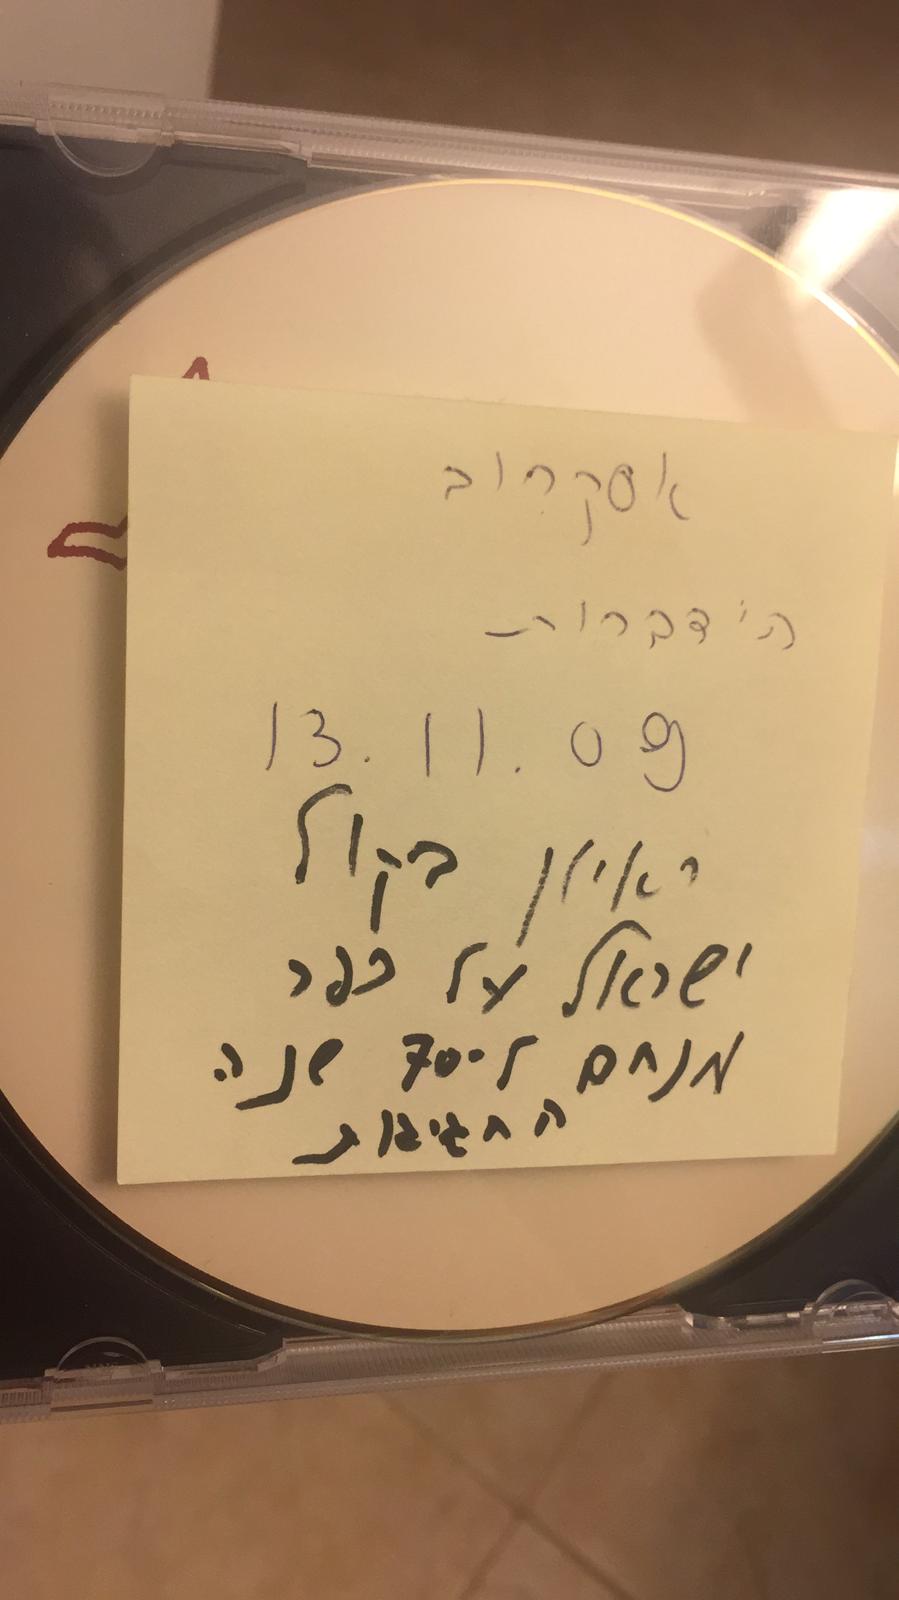 אסקרוב
הידברות
13.11.09
ראיון בקול
ישראל על כפר
מנחם ל-70 שנה
החגיגות